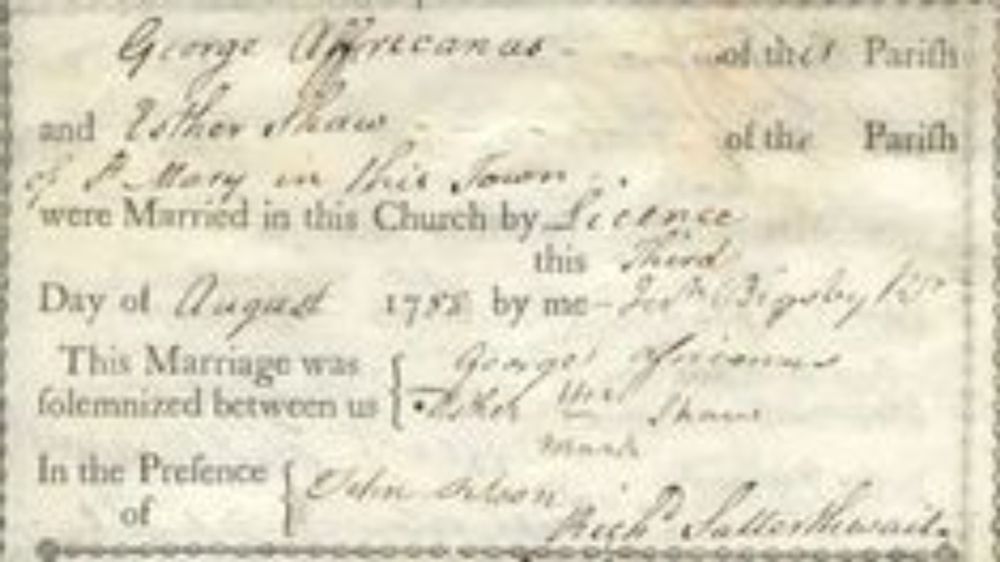 George Affricanus - of this Pariſh
and Esther Shaw - of the Pariſh
of St Mary in this Town
were Married in this Church by Licence
this Third
Day of August 1788 by me - Bigsby
This Marriage was George Africanus
ſolemnized between us { Esther Her Shaw
mark
In the Preſence { John
of Richd Satterthwaite